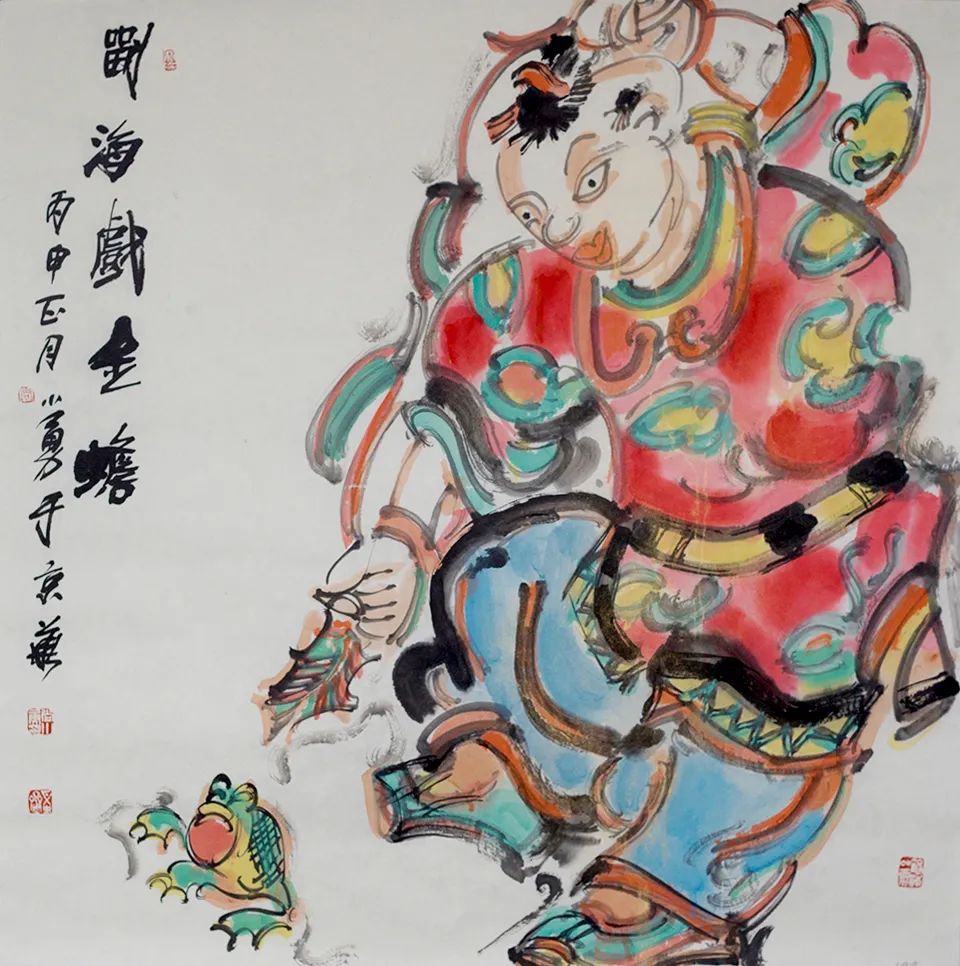 劉海戲金蟾
丙申正月小勇于京華